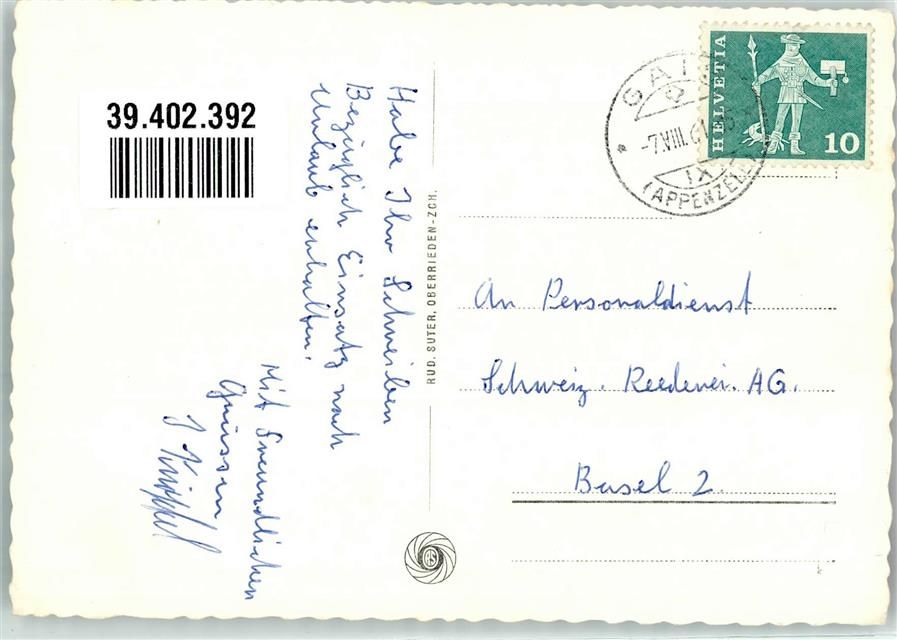 39.402.392
Habe Ihr Schreiben
Bezüglich Einsatz nach
Urlaub erhalten.
Mit Freundlichen
Grüssen
RUD. SUTER, OBERRIEDEN-ZCH.
HELVETIA
10
(APPENZELL)
IX
An Personaldienst
Schweiz. Reederei. AG.
Basel 2